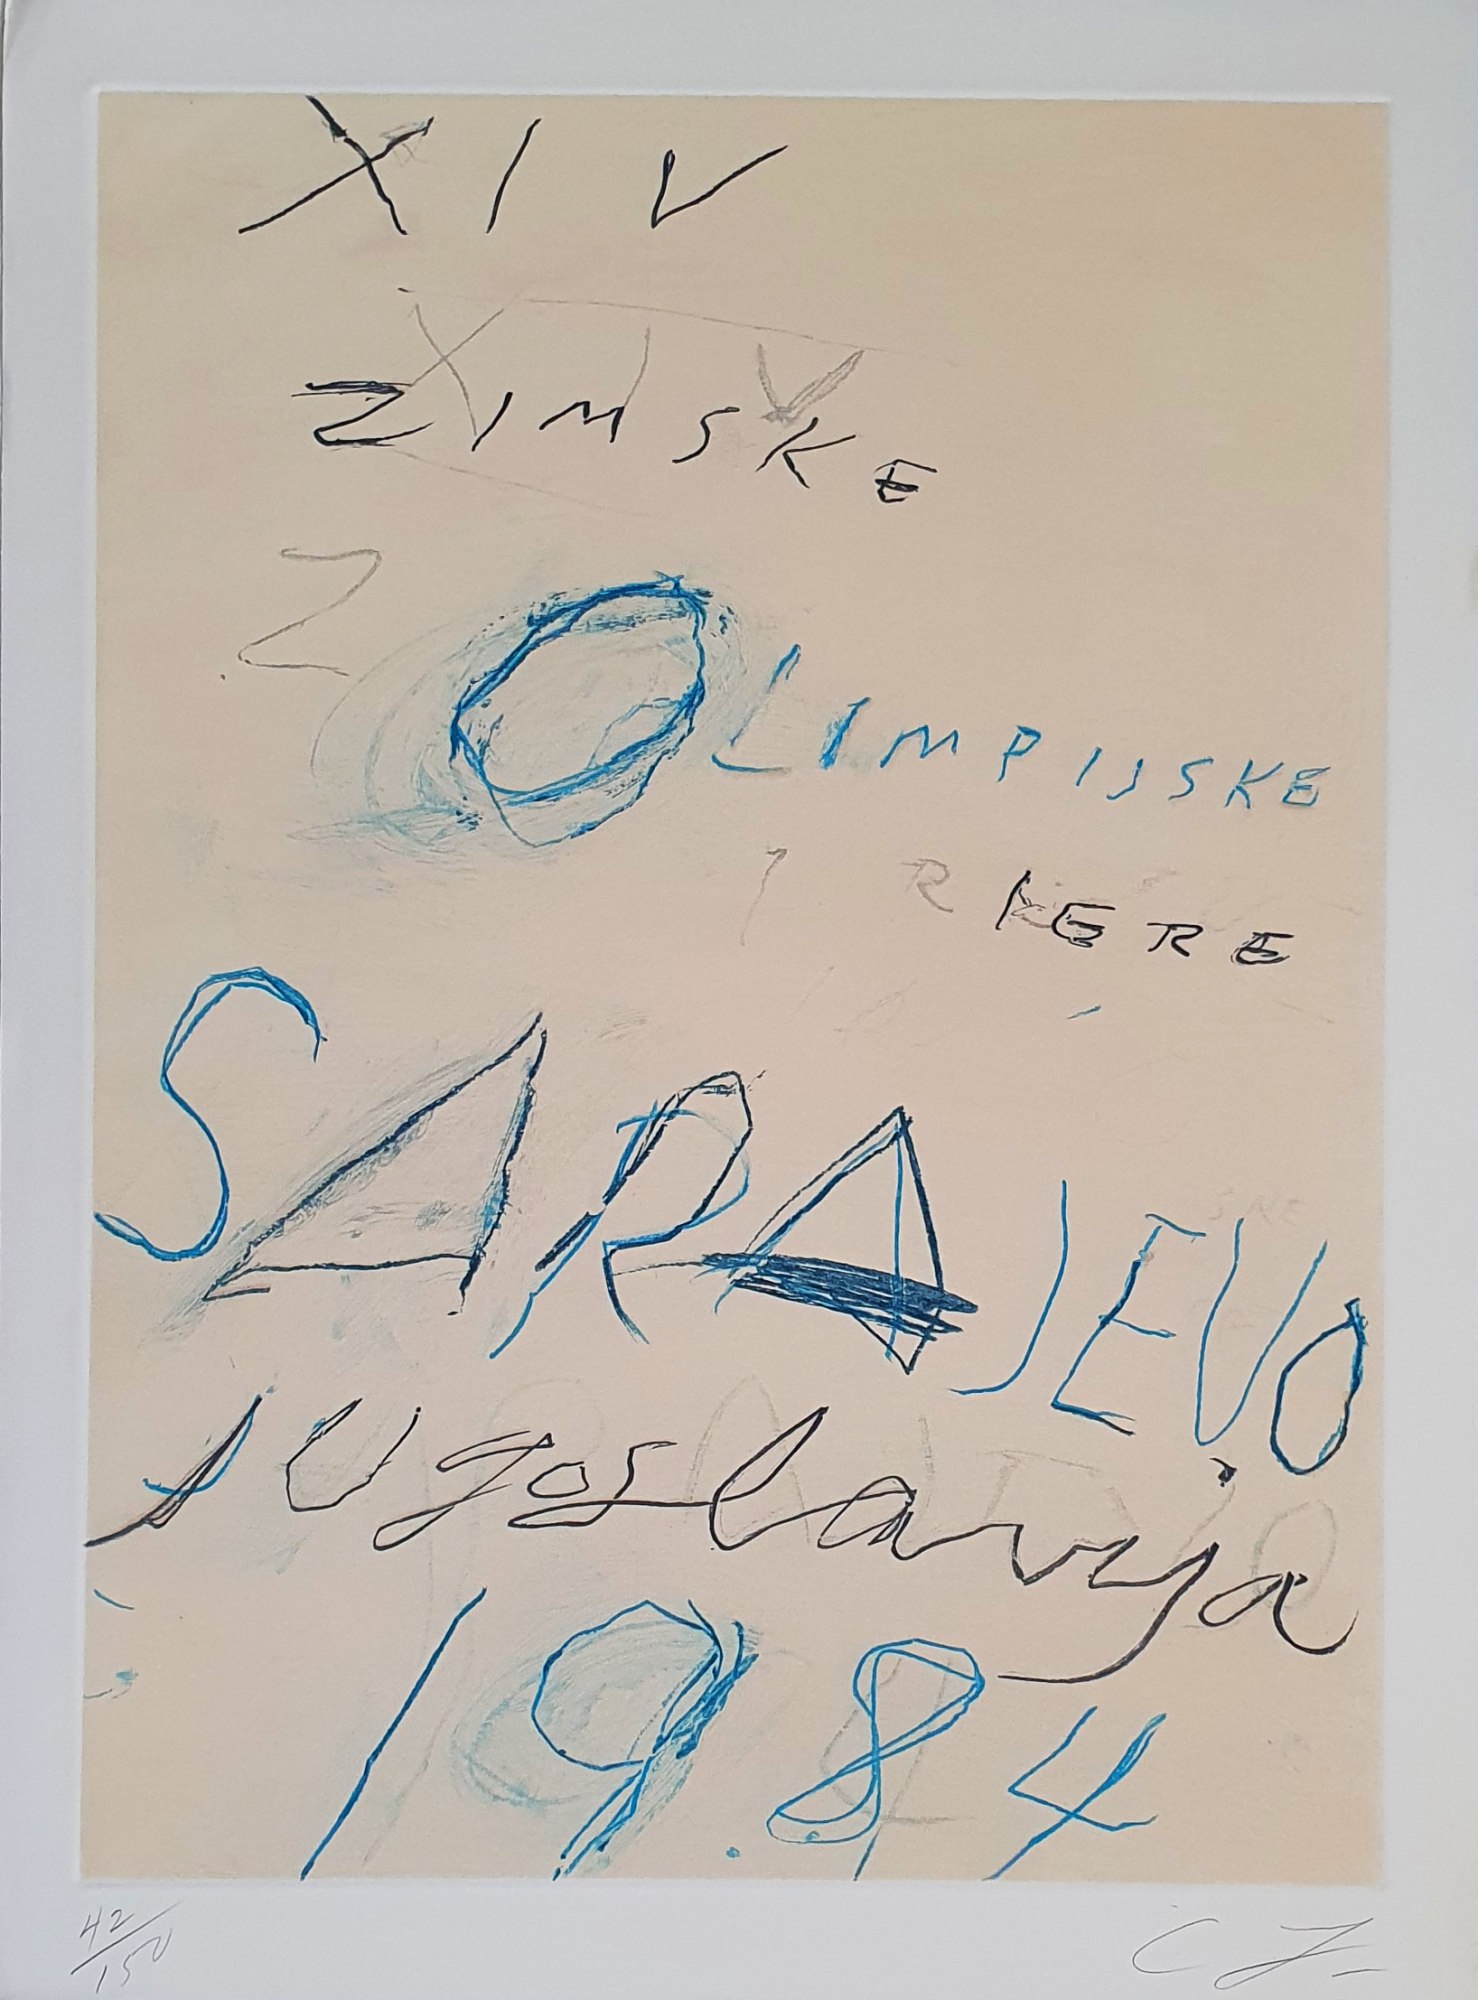 XIV
ZIMSKE
Z OLIMPIJSKE
R KERE
SARAJEVO
Jugoslavija
19.84
42/150